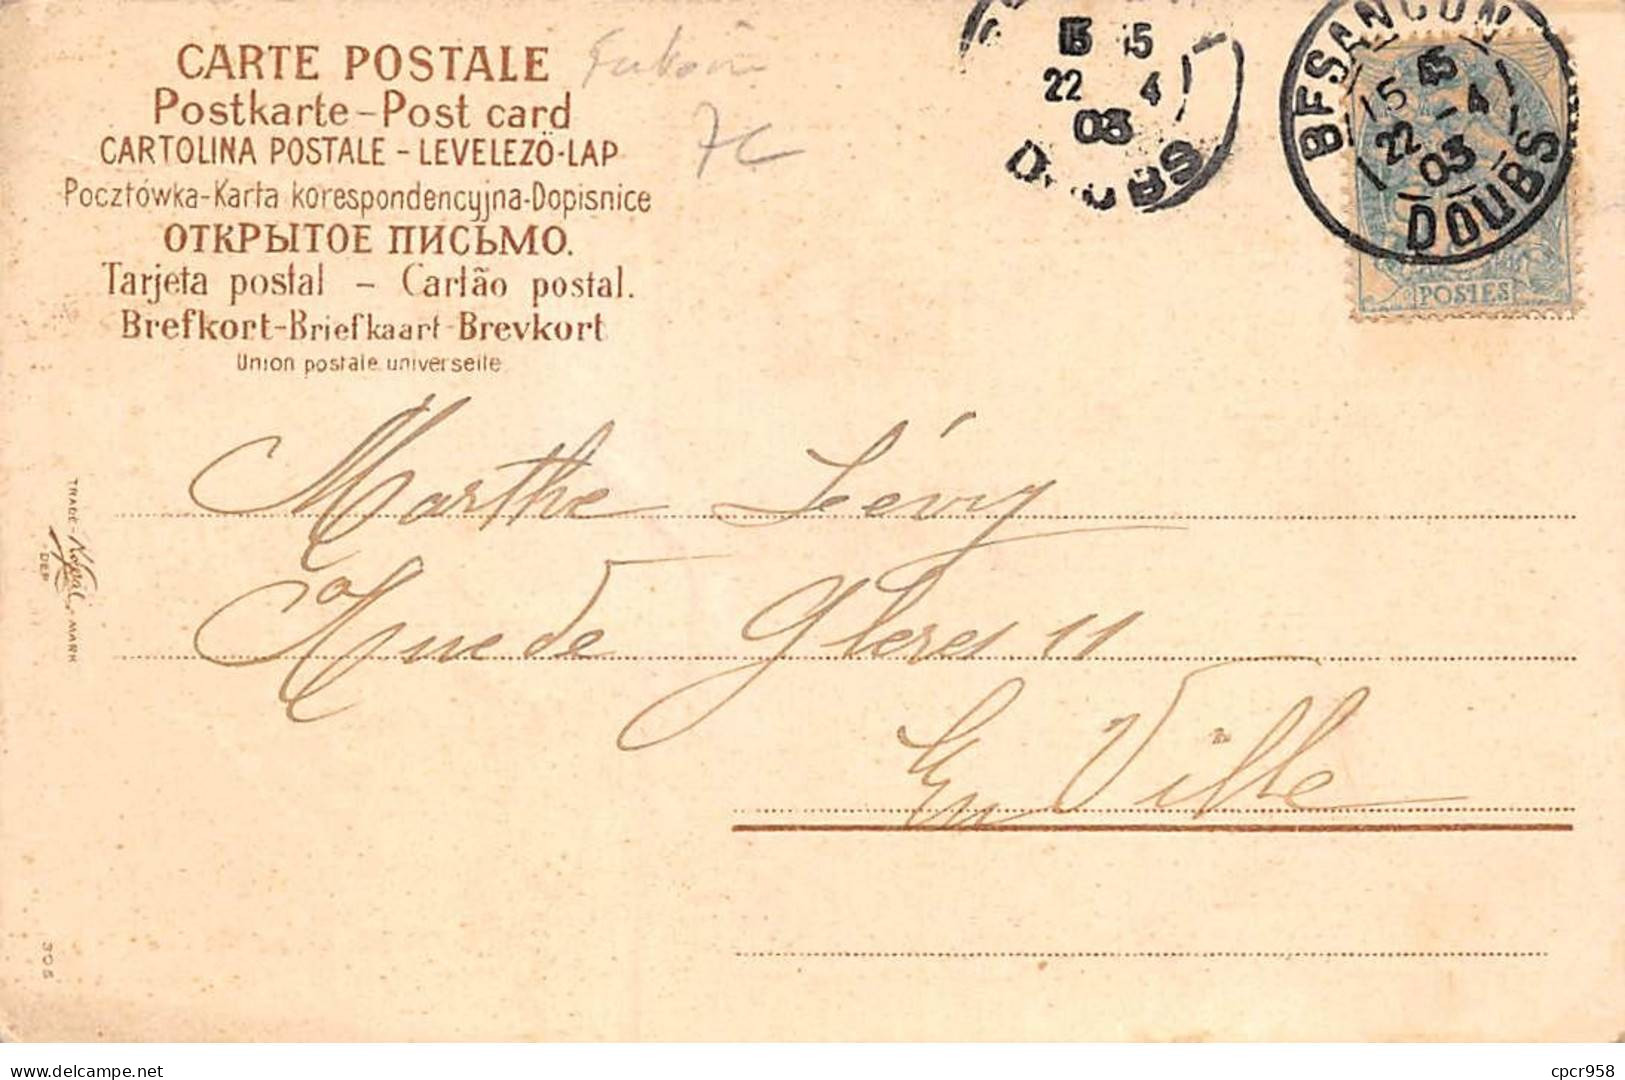 CARTE POSTALE
Postkarte-Post card
CARTOLINA POSTALE - LEVELEZÖ-LAP
Pocztówka-Karta korespondencyjna-Dopisnice
ОТКРЫТОЕ ПИСЬМО.
Tarjeta postal - Cartão postal.
Brefkort-Briefkaart-Brevkort
Union postale universelle
7€
15 15
22 4
03
DOUBS
BESANCON
15 15
22 -4
03
DOUBS
POSTES
Marthe Lévy
Rue de Gleres 11
En Ville
TRADE- MARK
DEP
305
cpcr958